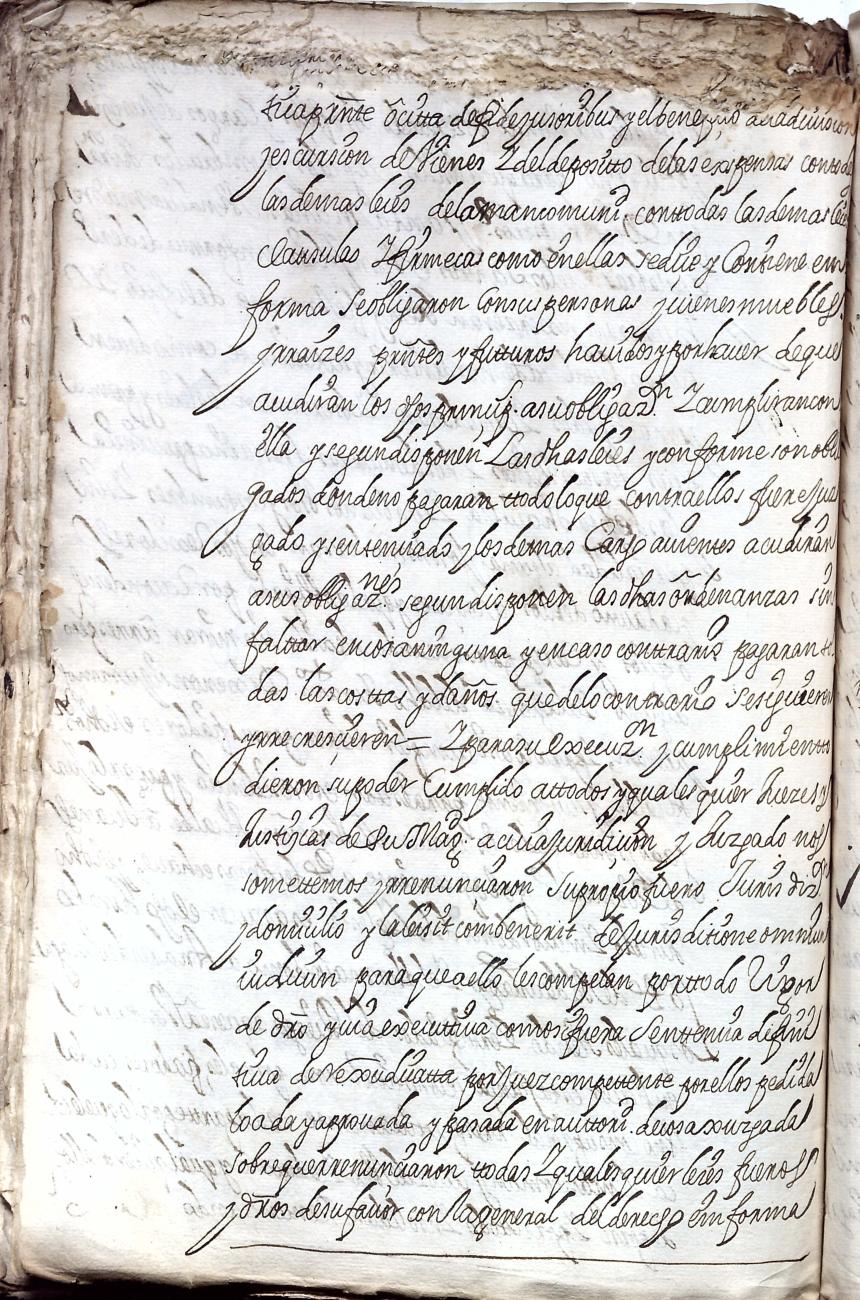 tiua presente ocitta de fidejusoribus y el beneficio a la diuicion
y escursion de Vienes Y del deposito de las expensas con todas
las demas leies de la mancomunid. con todas las demas
Clausulas Y firmecas como en ellas se dije y Contiene en
forma se obligaron Con sus personas y uienes muebles
y rraizes prntes y futturos hauidos y por hauer de que
acudiran los dhos prinçip. a su obligazon. Y cumpliran con
ella y segun disponen Las dhas leies y conforme son obli
gados donde no pagaran ttodo lo que contra ellos fuere Juz
gado y sentenciado y los demas Carg auientes acudiran
a sus obligaznes segun disponen las dhas ordenanzas sin
falttar en cosa ninguna y en caso conttrario pagaran to
das las costtas y daños que de lo contrario se siguieren
y rrecrescieren = Y para su execuzon y cumplimientto
dieron su poder Cumplido a ttodos y quales quier Juezes y
Justiçias de Su Magd. a cuia juridicion y Juzgado nos
somettemos y rrenunciaron su propio fuero Jurisdizon
y domicilio y la lei sit combenerit de Jurisditione omnium
iudicum para que a ello les compelan por ttodo Rigor
de dro y uia executtiua como si fuera Senttencia difini
tiua de Juez compettente por ellos pedida
loada y aprouada y pasada en auttorid. de cosa xuzgada
sobre que rrenunciaron ttodas Y qualesquier leies fueros
y dros de su fauor con la general del derecho em forma